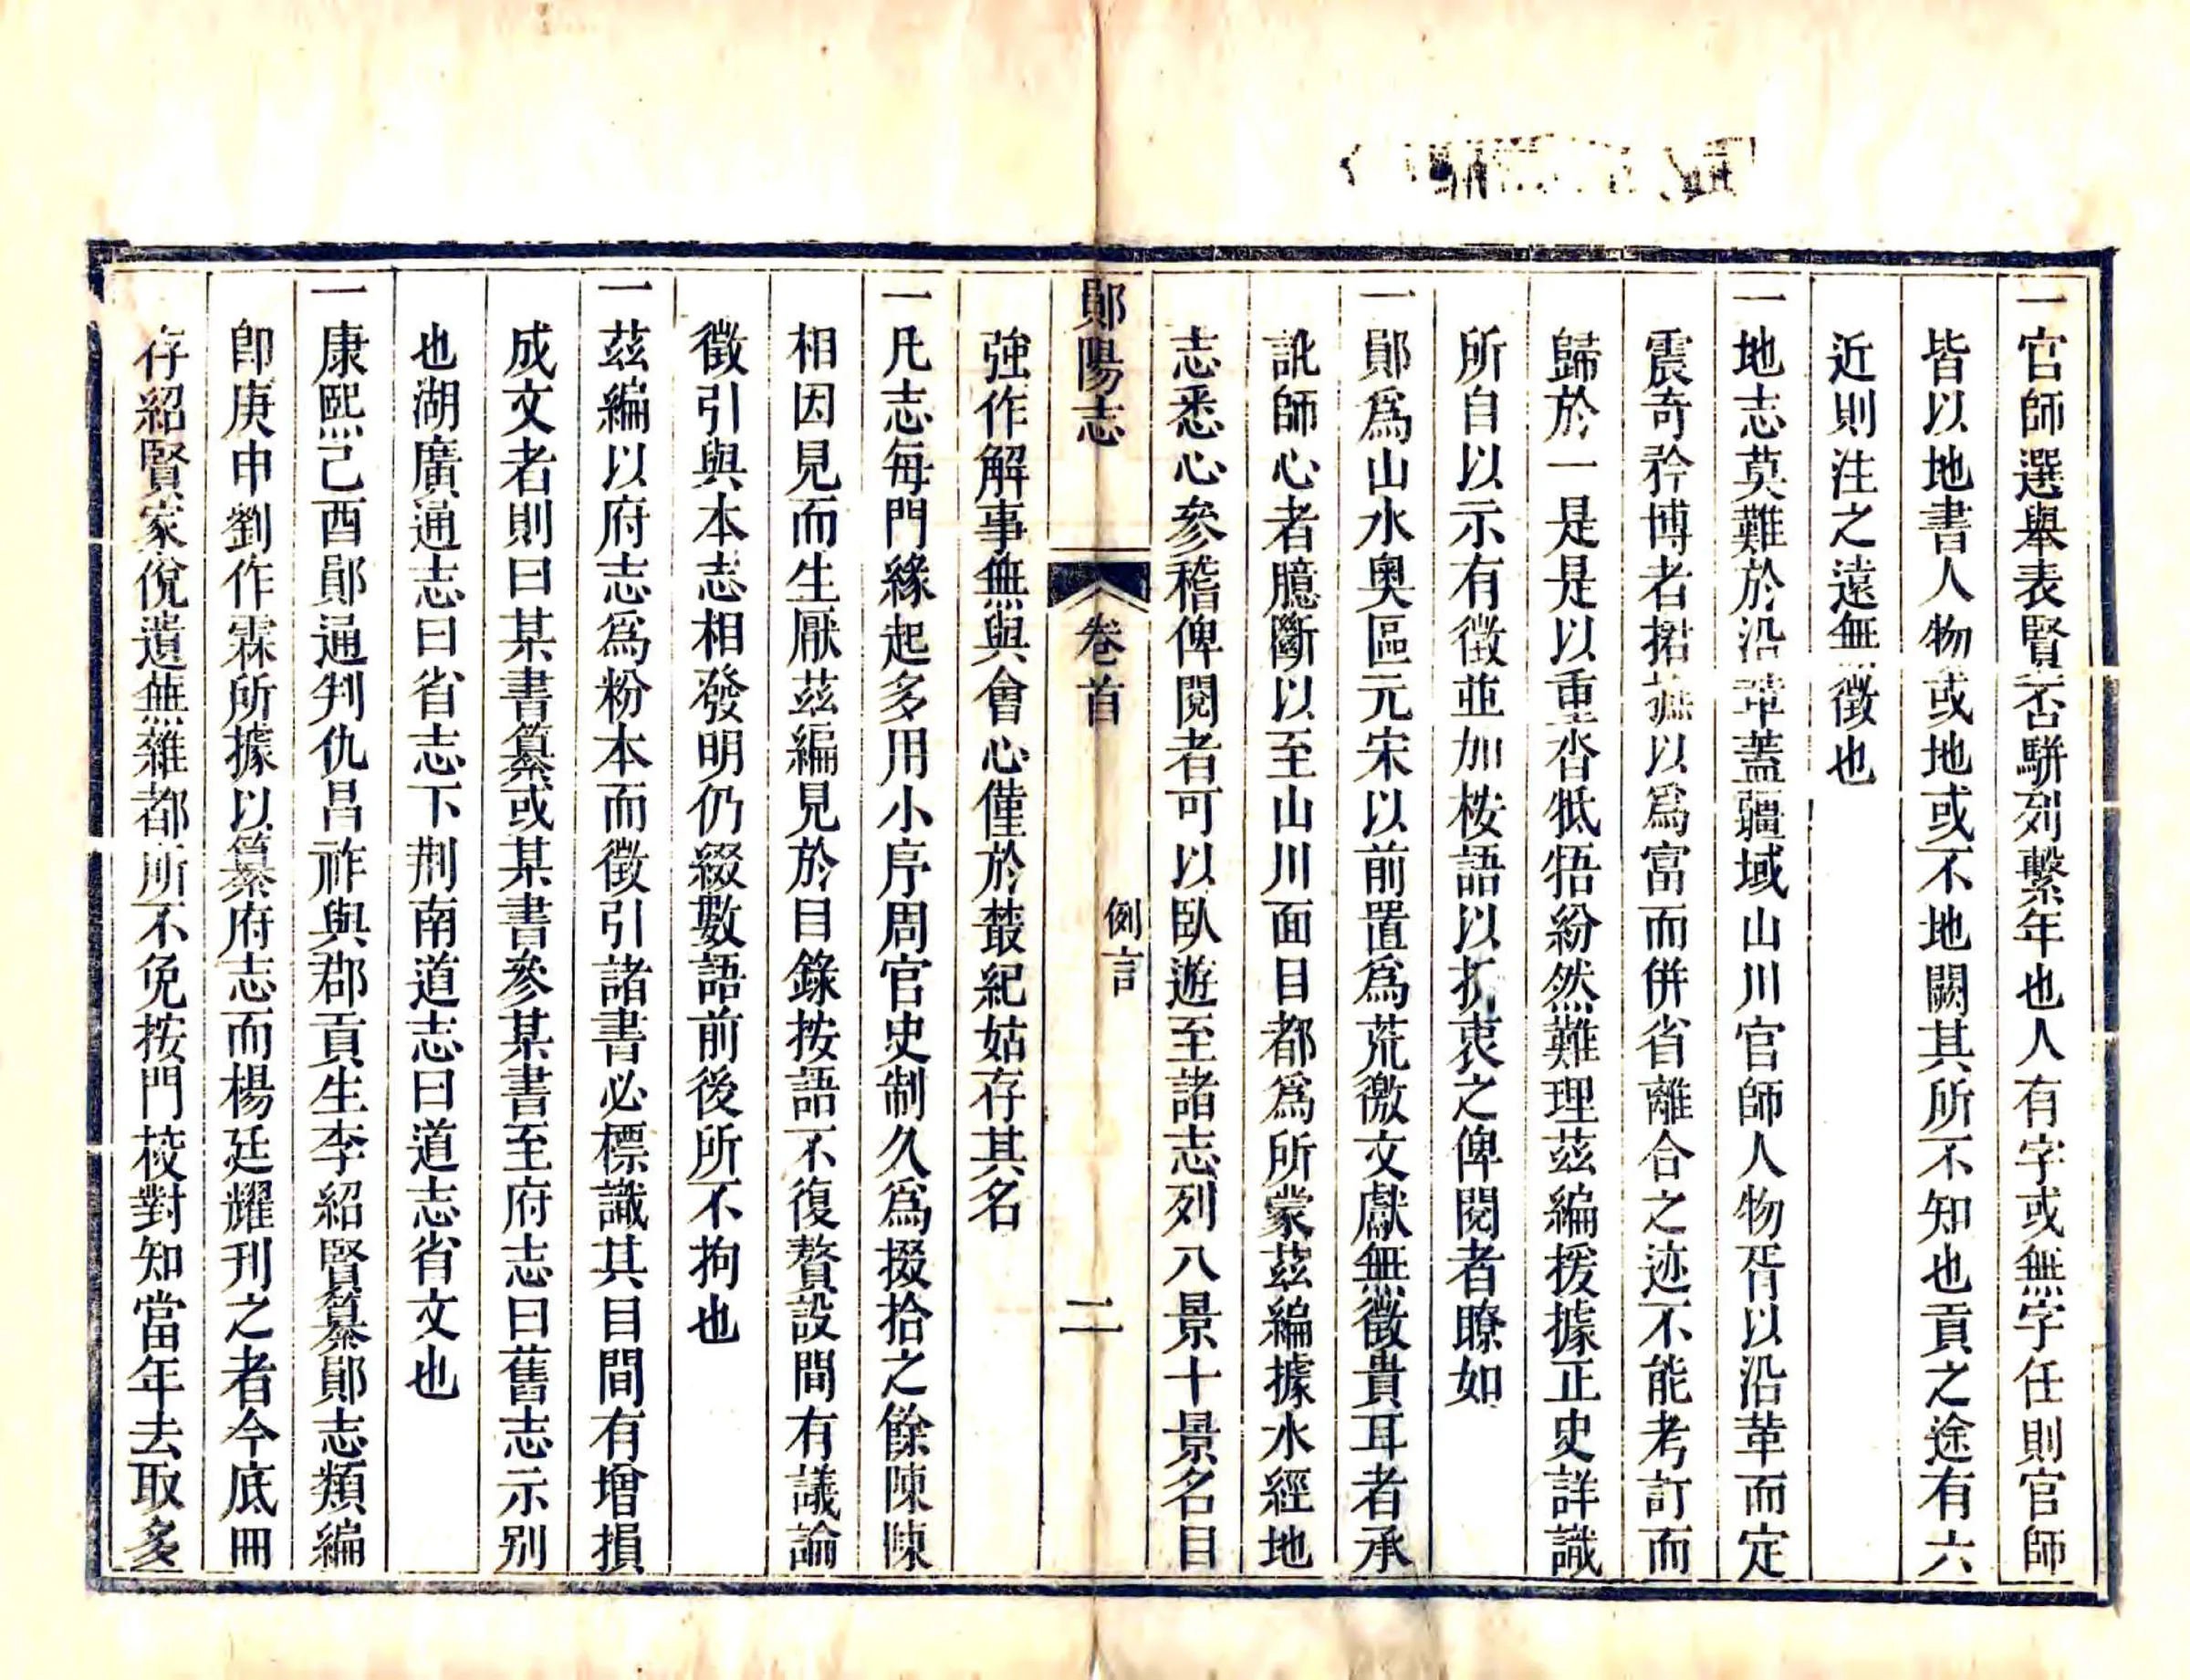 一官師選舉表賢否駢列繫年也人有字或無字任則官師
皆以地書人物或地或不地闕其所不知也貢之途有六
近則注之遠無徵也
一地志莫難於沿革蓋疆域山川官師人物胥以沿革而定
震奇矜博者捃摭以爲富而併省離合之迹不能考訂而
歸於一是是以重沓牴牾紛然難理茲編援據正史詳識
所自以示有徵並加桉語以折衷之俾閱者瞭如
一鄖爲山水奧區元宋以前置爲荒徼文獻無徵貴耳者承
訛師心者臆斷以至山川面目都爲所蒙茲編據水經地
志悉心參稽俾閱者可以臥遊至諸志列八景十景名目
鄖陽志 卷首 例言 二
強作解事無與會心僅於叢紀姑存其名
一凡志每門緣起多用小序周官史制久爲掇拾之餘陳陳
相因見而生厭茲編見於目錄按語不復贅設間有議論
徵引與本志相發明仍綴數語前後所不拘也
一茲編以府志爲粉本而徵引諸書必標識其目間有增損
成文者則曰某書纂或某書參某書至府志曰舊志示別
也湖廣通志曰省志下荆南道志曰道志省文也
一康熙己酉鄖通判仇昌祚與郡貢生李紹賢纂鄖志類編
卽庚申劉作霖所據以纂府志而楊廷耀刊之者今底冊
存紹賢家倪遺無雜都所不免按門校對知當年去取多